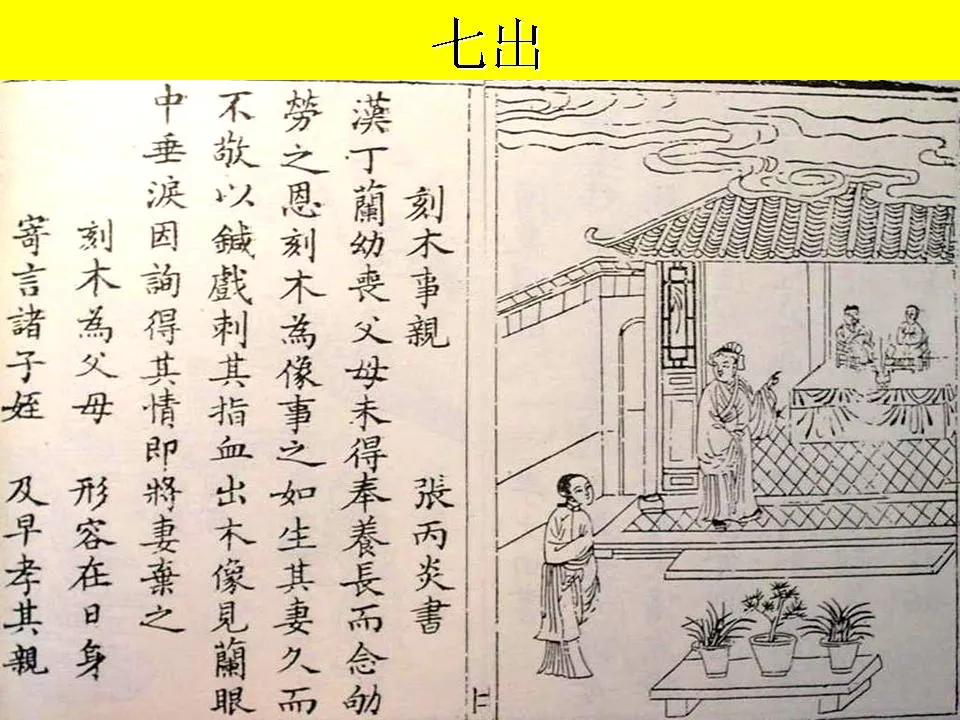 七出
刻木事親　張丙炎書
漢丁蘭幼喪父母未得奉養長而念劬
勞之恩刻木為像事之如生其妻久而
不敬以鍼戲刺其指血出木像見蘭眼
中垂淚因詢得其情即將妻棄之
刻木為父母　形容在日身
寄言諸子姪　及早孝其親